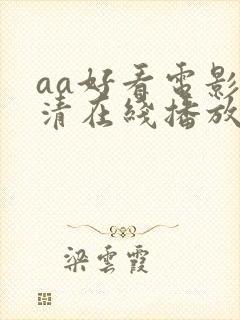 aa好看电影
清在线播放
梁云霞